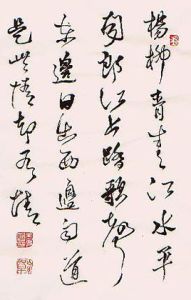 楊柳青々江水平
聞郎江上踏歌聲
東邊日出西邊雨道
是無情却有情